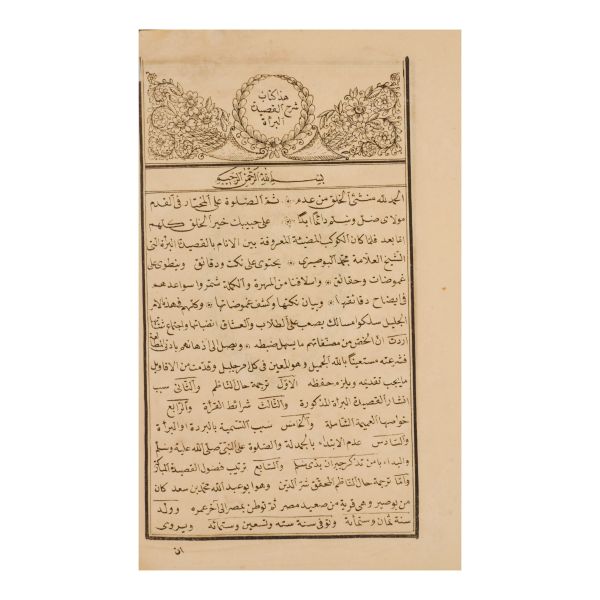 هذا كتاب
شرح القصيدة
البرأة
بسم الله الرحمن الرحيم
الحمد لله منشئ الخلق من عدم ثم الصلوة على المختار في القدم
مولاى صل وسلم دائما ابدا على حبيبك خير الخلق كلهم
اما بعد فلما كان الكوكب المضيئة المعروفة بين الانام بالقصيدة البرأة التى
للشيخ العلامة محمد البوصيرى يحتوى على نكت ودقائق وينطوى على
غموضات وحقائق واسلافنا من المهرة والكملة شمروا سواعدهم
فى ايضاح دقائقها وبيان نكتها وكشف غموضاتها فى هذا الامر
الجليل سلكوا مسالك يصعب على الطلاب والعشاق
اردت ان الخص من مصنفاتهم ما يسهل ضبطه ويصل الى اذهانهم بادنى
فشرعته مستعينا بالله الجميل وهو المعين فى كل امر جليل وقدمت من الاقاويل
ما يجب تقديمه ويلزم حفظه الاول ترجمة حال الناظم والثانى سبب
انشار القصيدة البرأة المذكورة والثالث شرائط القرأة والرابع
خواصها العميمة الشاملة والخامس سبب التسمية بالبردة او البرأة
والسادس عدم الابتداء بالحمدلة والصلوة على النبى صلى الله عليه وسلم
والبداء بامن تذكر جيران بذى سلم والسابع ترتيب فصول القصيدة
واما ترجمة حال الناظم المحقق شرف الدين وهو ابو عبد الله محمد بن سعد كان
من بوصير وهى قرية من صعيد مصر ثم توطن بمصر الى آخر عمره وولد
سنة ثمان وستمائة وتوفى سنة ستة وتسعين وستمائة ويروى
ان